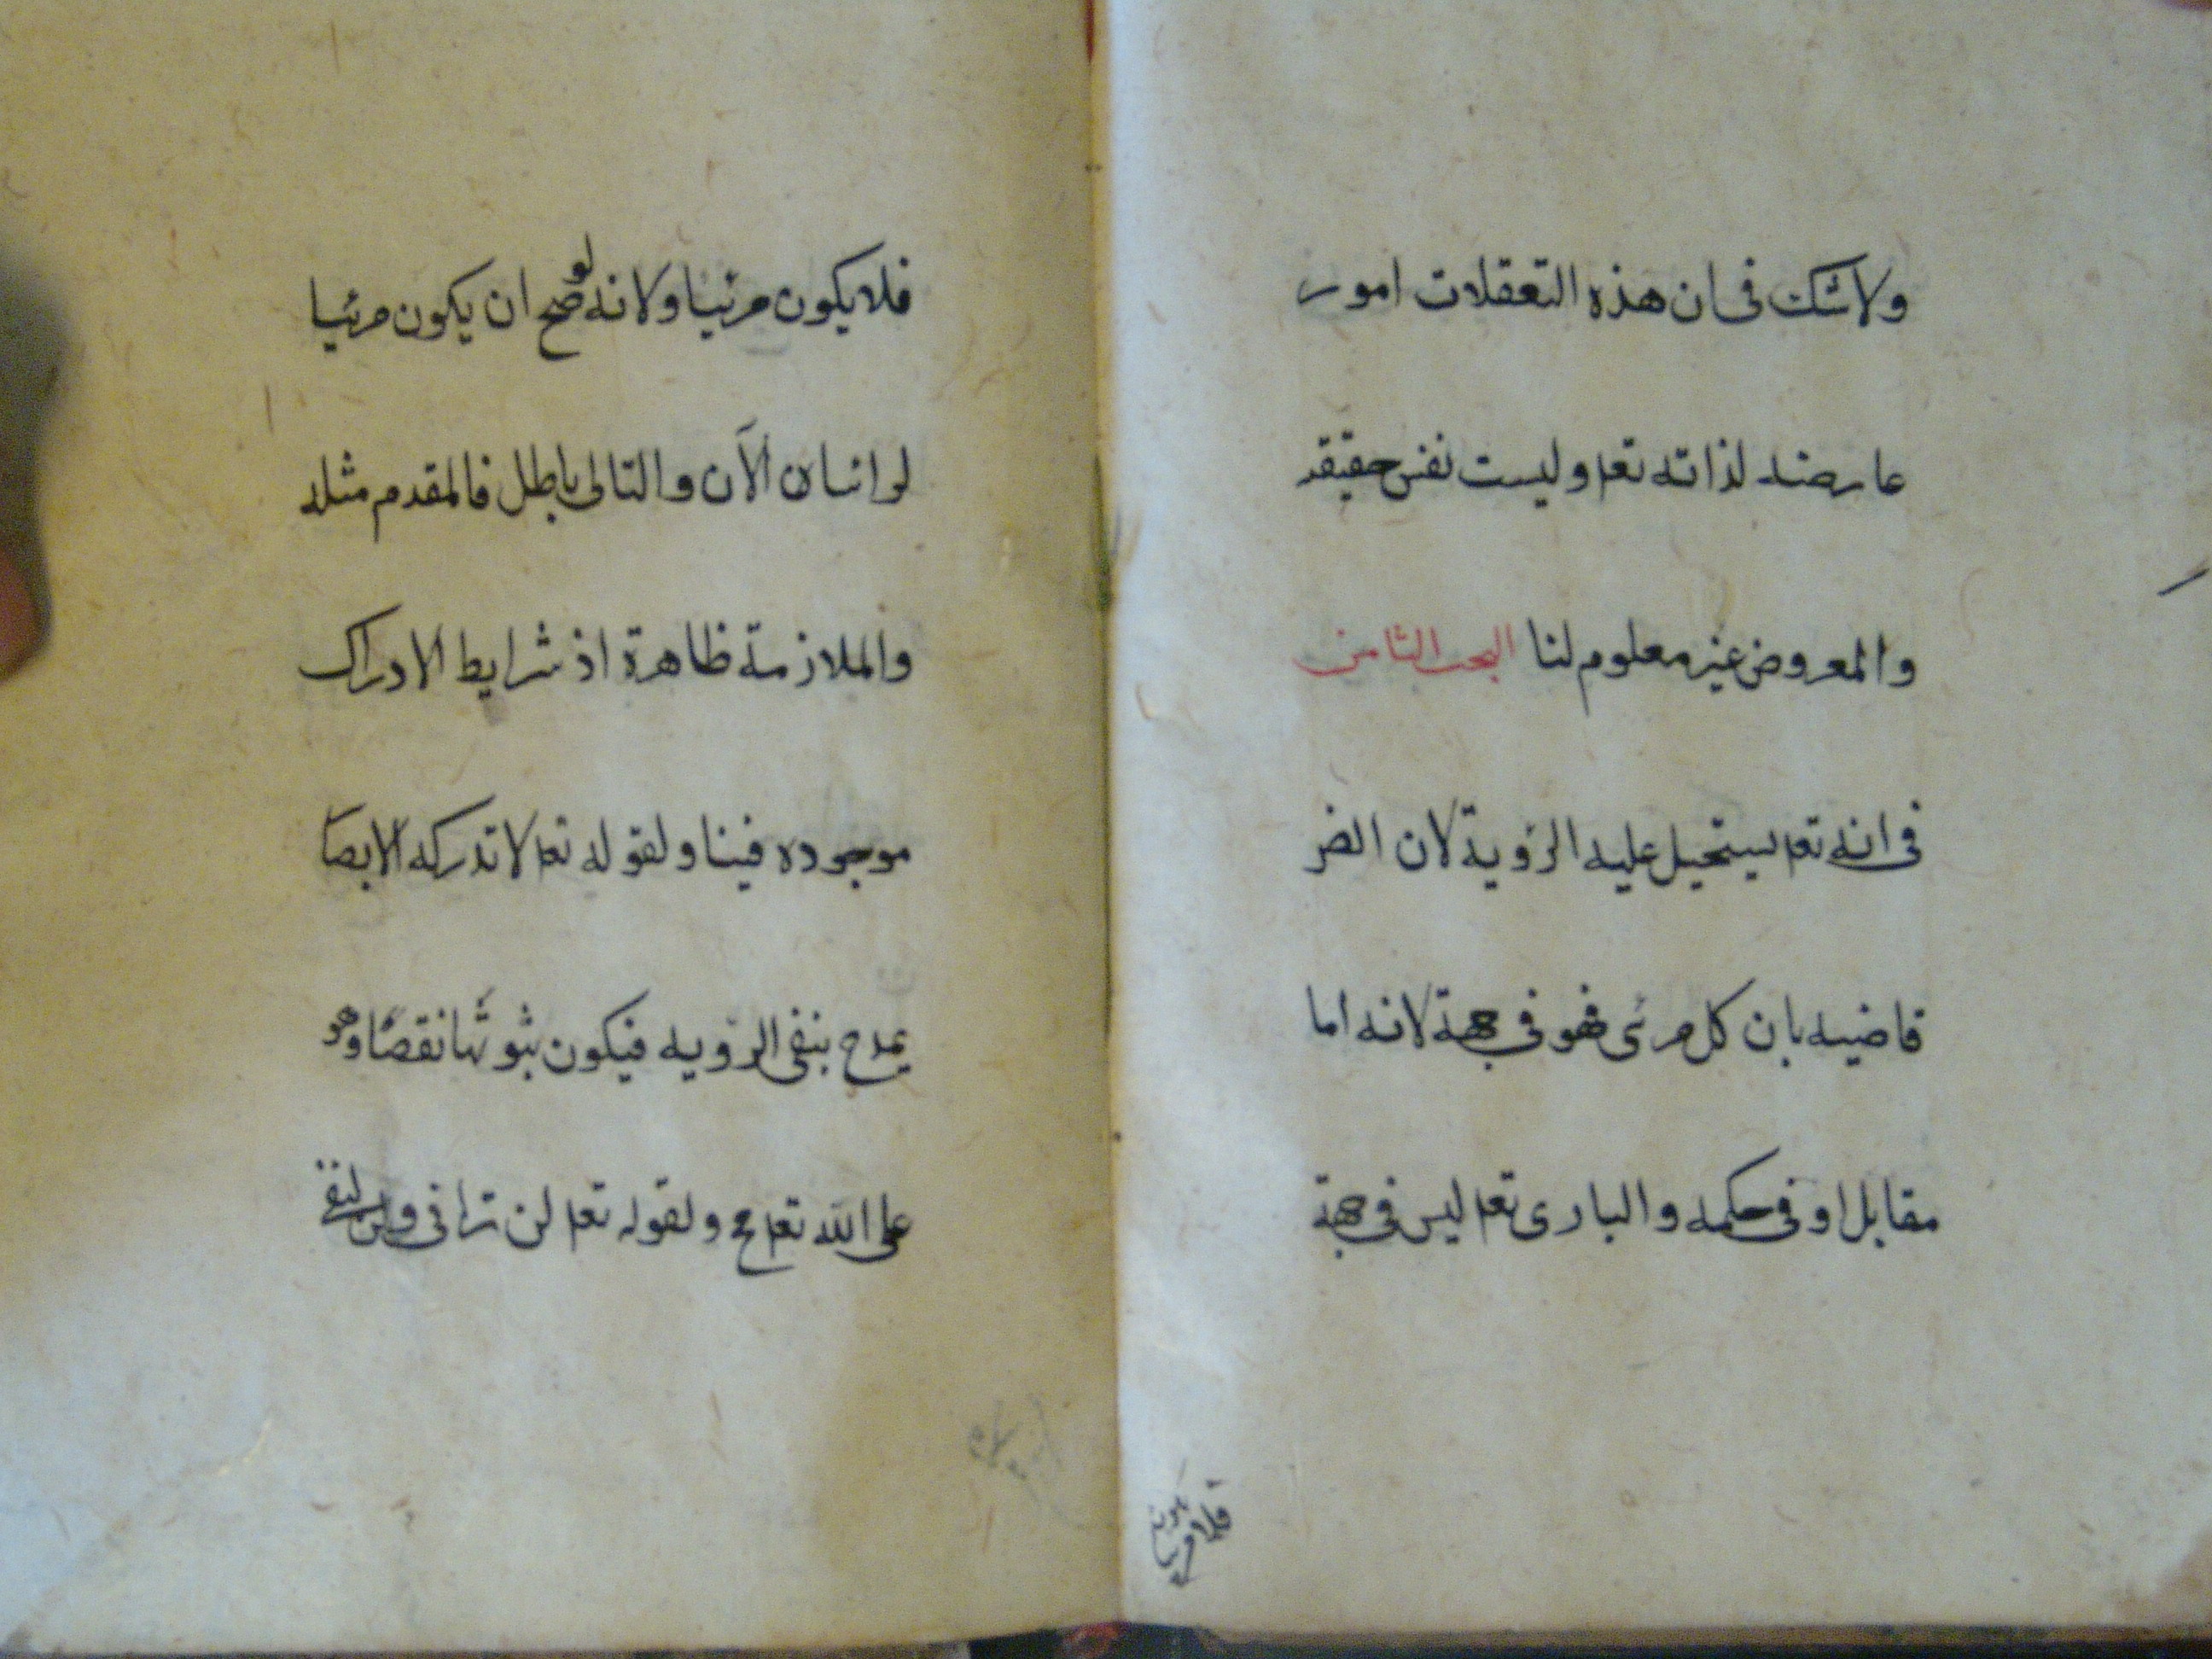 ولا شك فى ان هذه التعقلات امور
عارضه لذاته تعا وليست نفس حقيقه
والمعروض غير معلوم لنا البحث الثامن
فى انه تعا يستحيل عليه الرؤية لان الضر
قاضيه بان كل مرئى فهو فى جهة لانه اما
مقابل او فى حكمه والبارى تعا ليس فى جهة
فلا يكون مرئيا
فلا يكون مرئيا ولانه لو صح ان يكون مرئيا
لرايناه الآن والتالى باطل فالمقدم مثله
والملازمة ظاهرة اذ شرايط الادراك
موجوده فينا ولقوله تعا لا تدركه الابصا
تمدح بنفى الرؤيه فيكون ثبوتها نقصا وهو
على الله تعا مح ولقوله تعا لن ترانى ولن لنفى